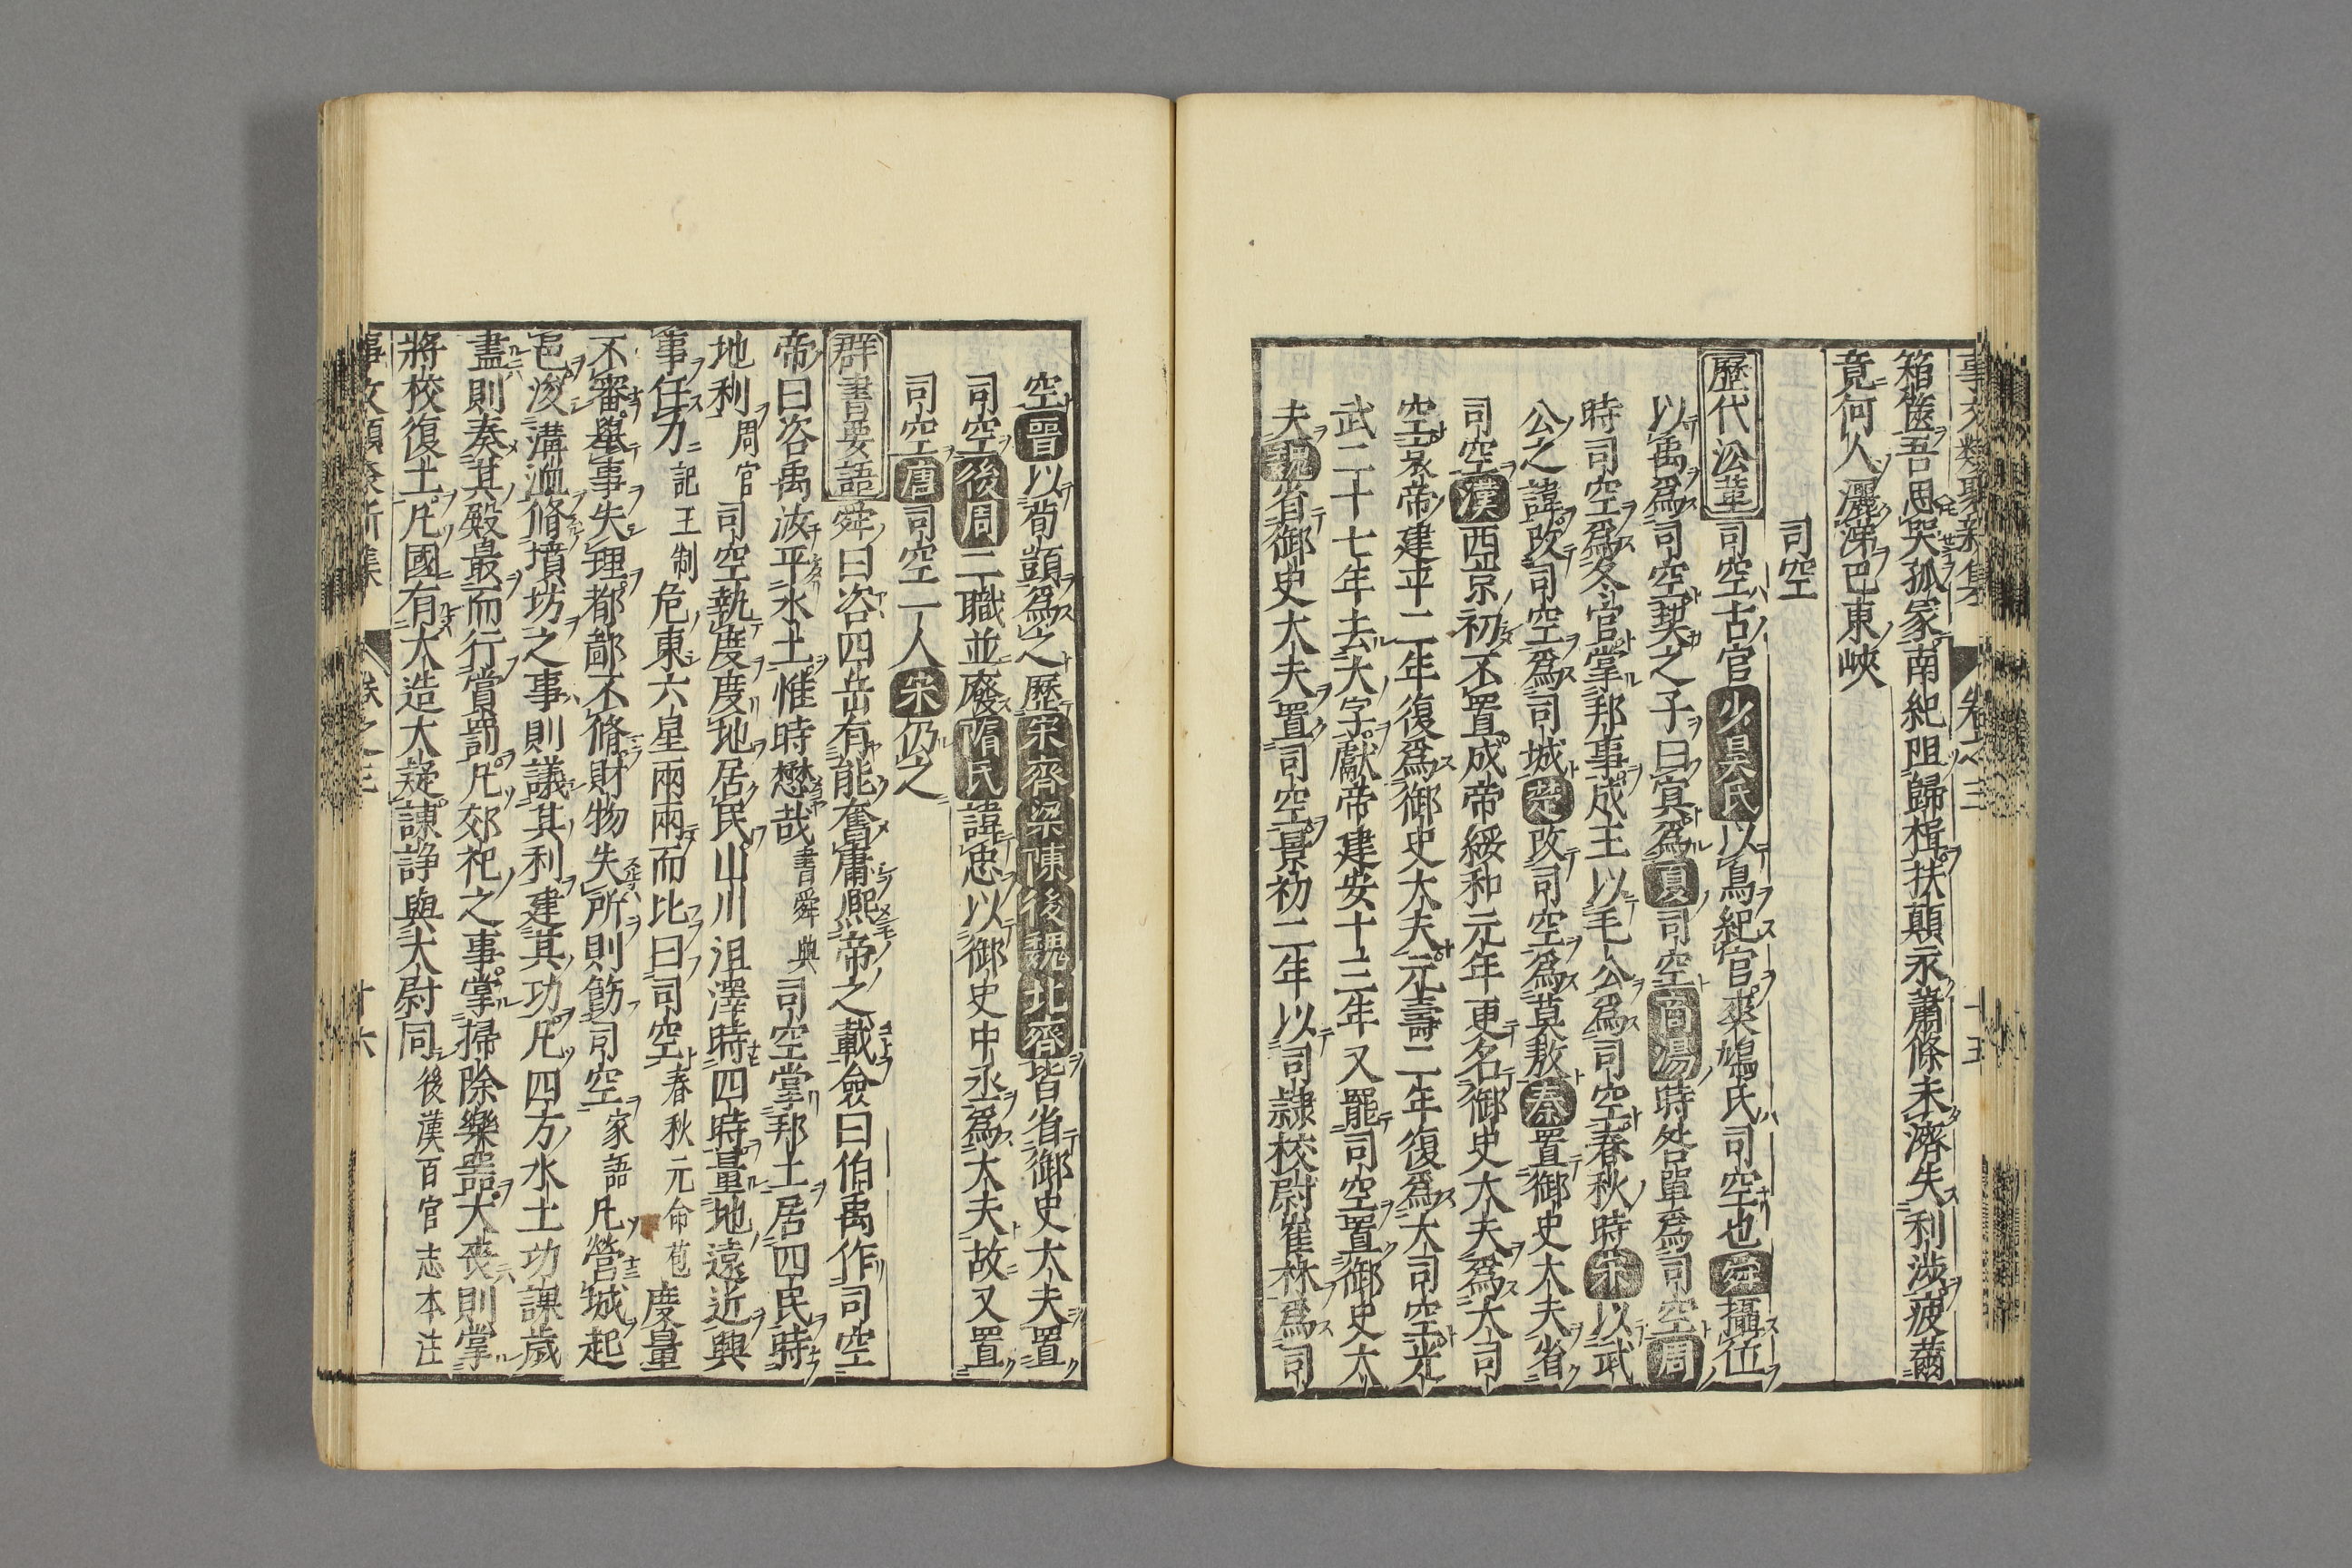 事文類聚新集 卷之三 十五
箱篋吾思哭孤冢南紀阻歸楫扶顛永蕭條未濟失利涉疲薾
竟何人灑涕巴東峽
司空
歷代沿革司空古官少昊氏以鳥紀官爽鳩氏司空也舜攝位
以禹爲司空契之子曰冥爲夏司空商湯時咎單爲司空周
時司空爲冬官掌邦事成王以毛公爲司空春秋時宋以武
公之諱改司空爲司城楚改司空爲莫敖秦置御史大夫省
司空漢西京初不置成帝綏和元年更名御史大夫爲大司
空哀帝建平二年復爲御史大夫元壽二年復爲大司空光
武二十七年去大字獻帝建安十三年又罷司空置御史大
夫魏省御史大夫置司空景初二年以司隷校尉崔林爲司
空晉以荀顗爲之歷宋齊梁陳後魏北齊皆省御史大夫置
司空後周二職並廢隋氏諱忠以御史中丞爲大夫故又置
司空唐司空一人宋仍之
群書要語舜曰咨四岳有能奮庸熙帝之載僉曰伯禹作司空
帝曰咨禹汝平水土惟時懋哉書舜典司空掌邦土居四民時
地利周官司空執度度地居民山川沮澤時四時量地遠近興
事任力記王制危東六星兩兩而比曰司空春秋元命苞度量
不審舉事失理都鄙不脩財物失所則飭司空家語凡營城起
邑浚溝洫脩墳坊之事則議其利建其功凡四方水土功課歲
盡則奏其殿最而行賞罰凡郊祀之事掌掃除樂器大喪則掌
將校復土凡國有大造大疑諫諍與大尉同後漢百官志本注
事文類聚新集 卷之三 十六